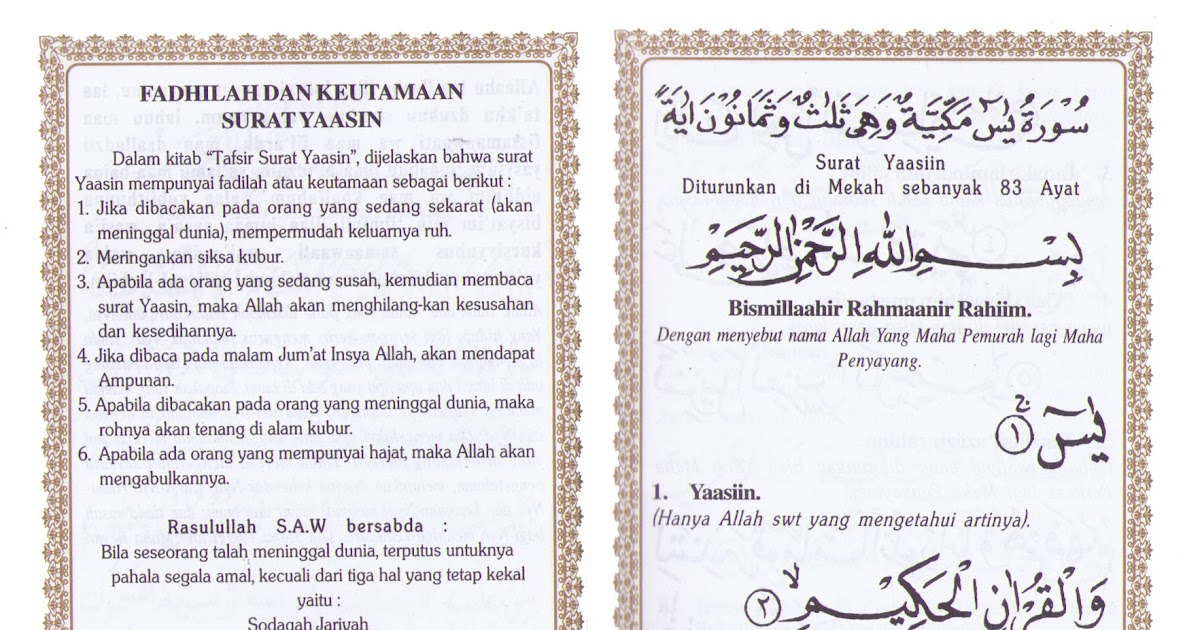 FADHILAH DAN KEUTAMAAN
SURAT YAASIN
Dalam kitab “Tafsir Surat Yaasin”, dijelaskan bahwa surat
Yaasin mempunyai fadilah atau keutamaan sebagai berikut :
1. Jika dibacakan pada orang yang sedang sekarat (akan
meninggal dunia, mermudah keluarnya ruh.
2. Meringankan siksa kubur.
3. Apabila ada orang yang sedang susah, kemudian membaca
surat Yaasin, maka Allah akan menghilang-kan kesusahan
dan kesedihannya.
4. Jika dibaca pada malam Jum’at Insya Allah, akan mendapat
Ampunan.
5. Apabila dibacakan pada orang yang meninggal dunia, maka
rohnya akan tenang di alam kubur.
6. Apabila ada orang yang mempunyai hajat, maka Allah akan
mengabulkannya.
Rasulullah S.A.W bersabda :
Bila seseorang talah meninggal dunia, terputus untuknya
pahala segala amal, kecuali dari tiga hal yang tetap kekal
yaitu :
Sodaqah Jariyah
سُوْرَةُ يٰسٓ مَكِّيَّةٌ وَّهِيَ ثَلٰثٌ وَّثَمَانُوْنَ اٰيَةً
Surat Yaasiin
Diturunkan di Mekah sebanyak 83 Ayat
بِسْــــمِ اللّٰهِ الرَّحْمٰنِ الرَّحِيْمِ
Bismillaahir Rahmaanir Rahiim.
Dengan menyebut nama Allah Yang Maha Pemurah lagi Maha
Penyayang.
يٰسٓ ۚ ﴿١﴾
1. Yaasiin.
(Hanya Allah swt yang mengetahui artinya).
وَالْقُرْاٰنِ الْحَكِيْمِ ۙ ﴿٢﴾